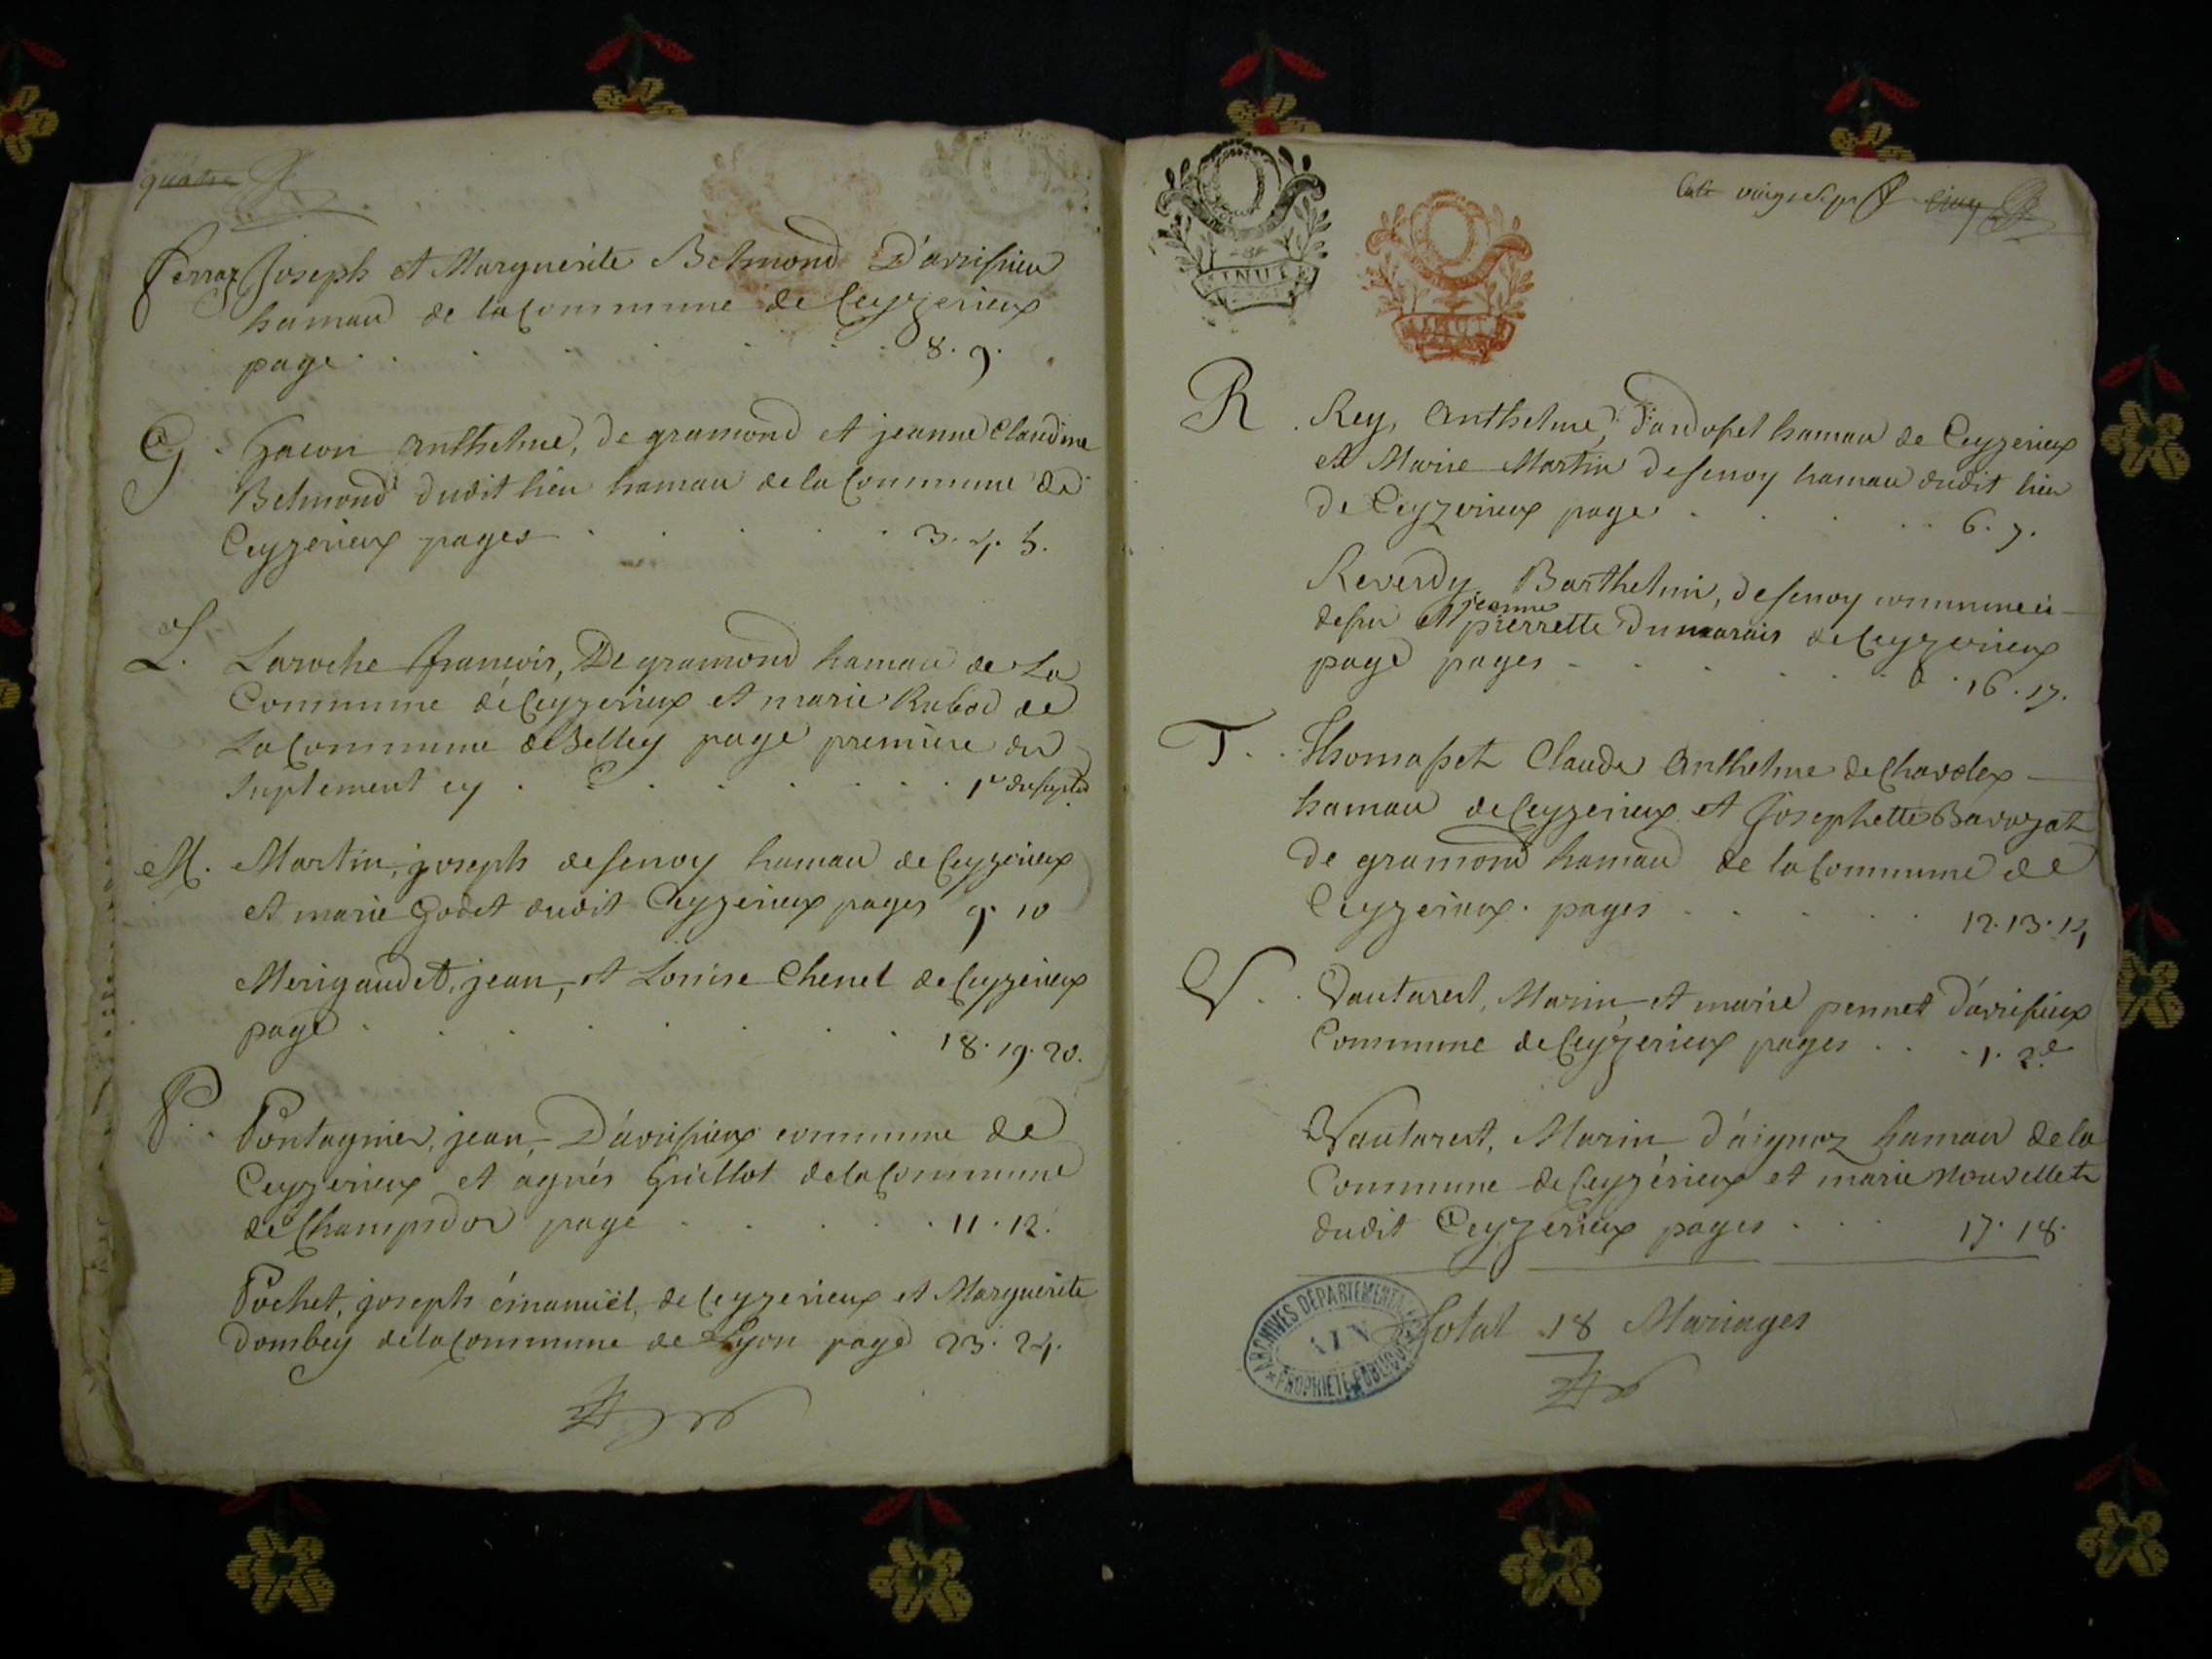 quatre
Ferraz Joseph et Marguerite Belmond D'avrissieu
hamau de la Commune de Ceyzerieux
page . . . . . . . 8. 9.
G. Gacon Anthelme, de gramond et jeanne Claudine
Belmond dudit lieu hamau de la Commune de
Ceyzerieux pages . . . . 3. 4. 5.
L. Laroche françois, De gramond hamau de La
Commune de Ceyzerieux et marie Rubod de
La Commune de Belley page première du
Suplement cy . . . . . . 1re du suplt
M. Martin, joseph de senoy hamau de Ceyzerieux
et marie Godet dudit Ceyzerieux pages 9. 10
Merigaudet, jean, et Louise Chenel de Ceyzerieux
page . . . . . . . 18. 19. 20.
P. Pontagnier, jean, D'avrissieux commune de
Ceyzerieux et agnés Guillot de la Commune
de Champdor page . . . . . 11. 12.
Pochet, joseph émanuël, de Ceyzerieux et Marguerite
Dombey de la Commune de Lyon page 23. 24.
MINUTE
MINUTE
cote vingt sept cinq
R. Rey, Anthelme, d'ardosset hamau de Ceyzerieux
et Marie Martin de senoy hamau dudit lieu
de Ceyzerieux page . . . . . 6. 7.
Reverdy Barthelmi, de senoy commune
jeanne
et pierrette Dumarais de Ceyzerieux
page pages . . . . . . . 16. 17.
T. Thomasset Claude Anthelme de Chavolex
hamau de Ceyzerieux et Josephette Bavozat
de gramond hamau de la Commune de
Ceyzerieux. pages . . . . . 12. 13. 14
V. Vautaret, Marin, et marie pennet d'avrissieux
Commune de Ceyzerieux pages . . . 1. 2.e
Vautaret, Marin, d'aignoz hamau de la
Commune de Ceyzérieux et marie Nouvellet
dudit Ceyzerieux pages . . . 17. 18.
Total 18 Mariages
ARCHIVES DEPARTEMENTALES
AIN
PROPRIETE PUBLIQUE